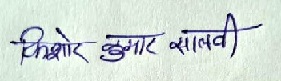 किशोर कुमार सालवी